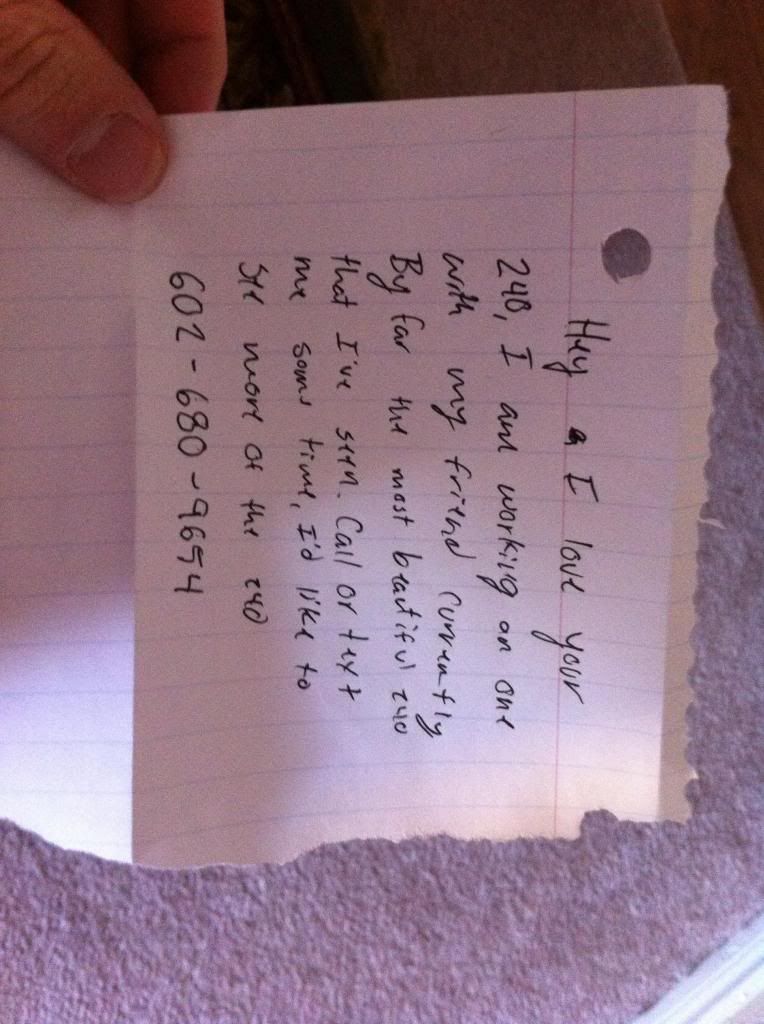 Hey I love your
240, I am working on one
with my friend currently
By far the most beautiful 240
that I've seen. Call or text
me some time, I'd like to
see more of the 240
602-680-9654